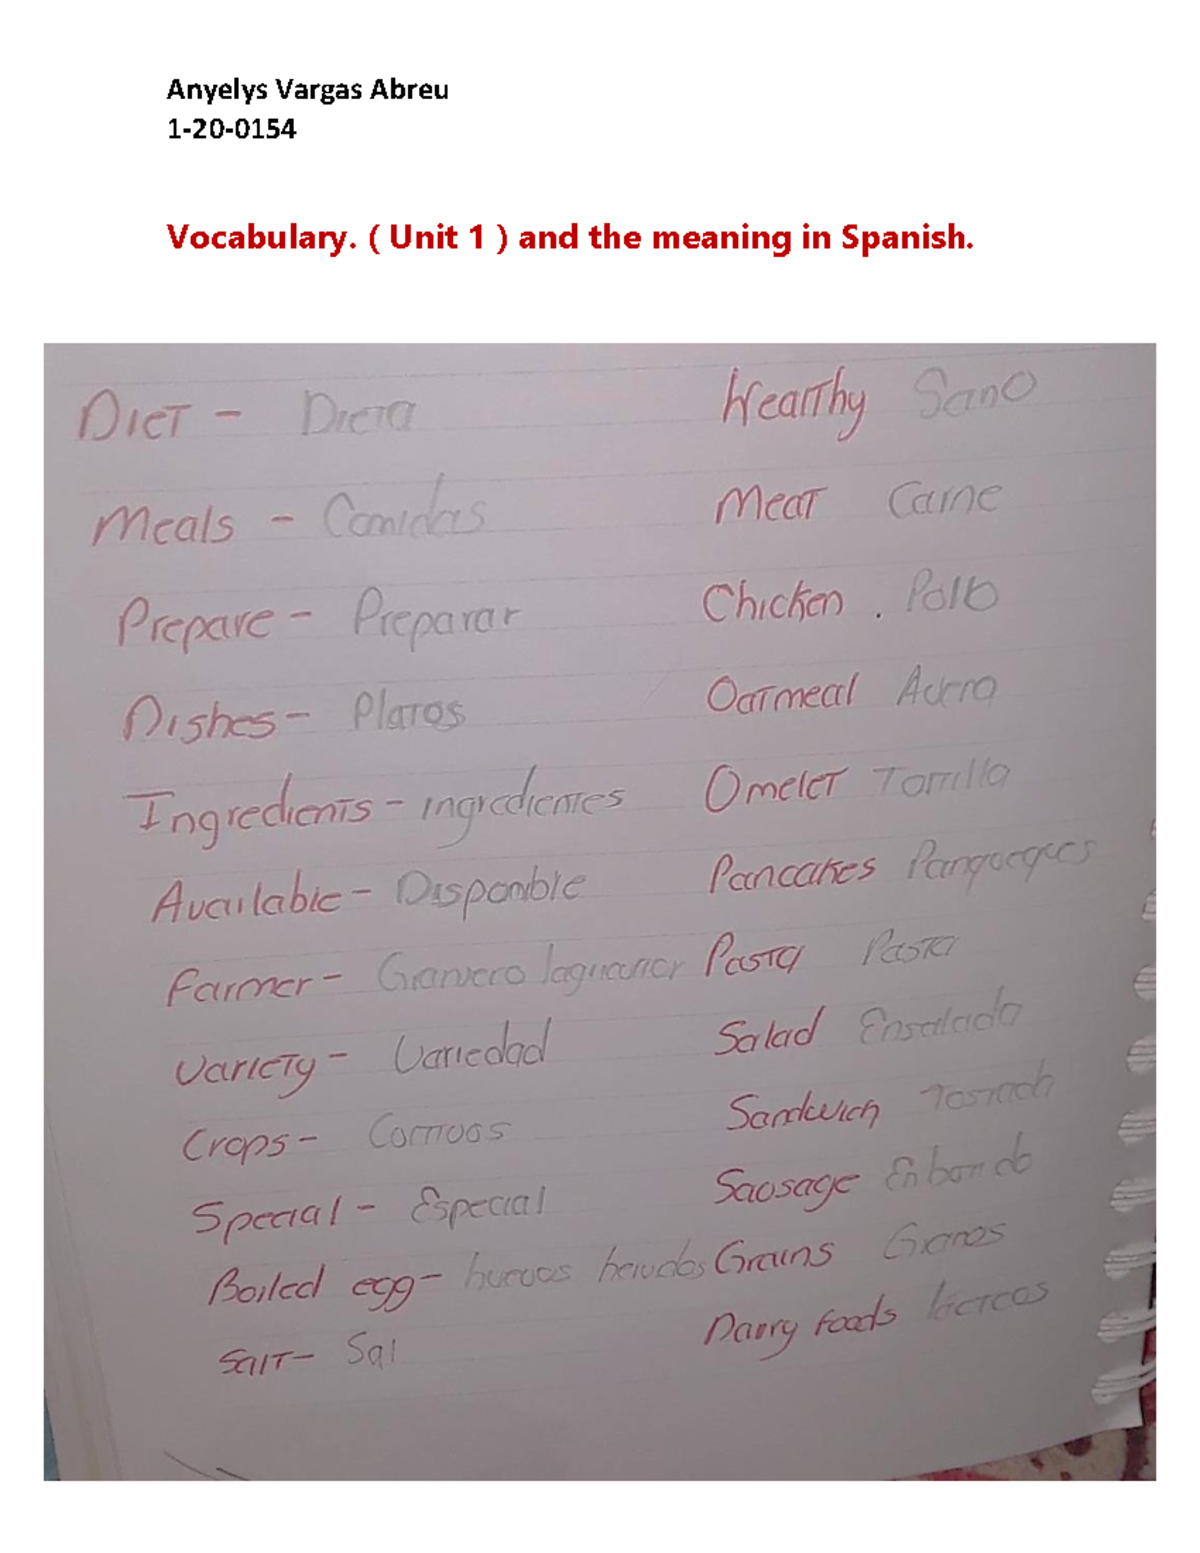 Anyelys Vargas Abreu
1-20-0154
Vocabulary. ( Unit 1 ) and the meaning in Spanish.
Diet - Dieta
Meals - Comidas
Prepare - Preparar
Dishes - Platos
Ingredients - ingredientes
Available - Disponible
Farmer - Granjero
Variety - Variedad
Crops -
Special - Especial
Boiled egg - huevos
Salt - Sal
Healthy Sano
Meat Carne
Chicken . Pollo
Oatmeal
Omelet Torrilla
Pancakes Panqueques
Pasta Pasta
Salad Ensalada
Sandwich
Sausage
Grains Granos
Dairy foods